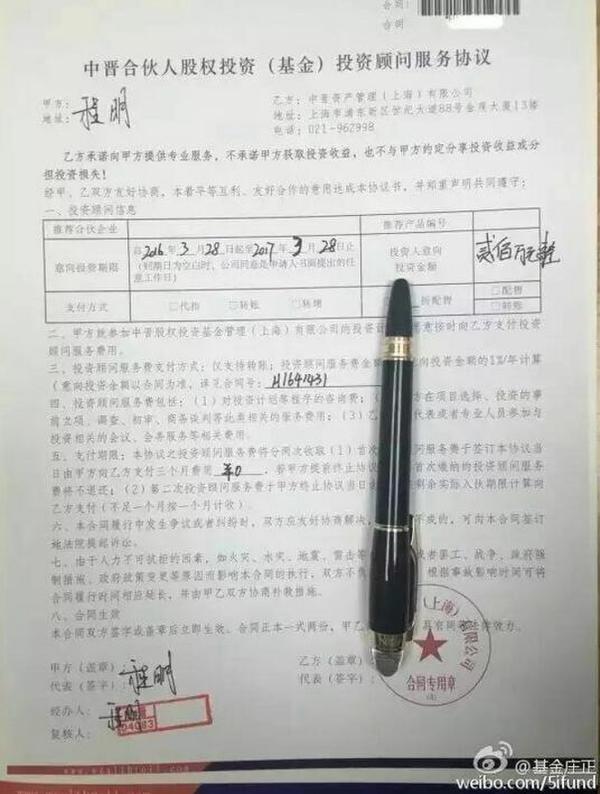 合同
合例
中晋合伙人股权投资（基金）投资顾问服务协议
甲方：程明
地址：
乙方：中晋资产管理（上海）有限公司
地址：上海市浦东新区世纪大道88号金茂大厦13楼
电话：021-962998
乙方承诺向甲方提供专业服务，不承诺甲方获取投资收益，也不与甲方约定分享投资收益或分
担投资损失！
经甲、乙双方友好协商，本着平等互利、友好合作的意愿达成本协议书，并郑重声明共同遵守：
一、投资顾问信息
推荐合伙企业 推荐产品编号
意向投资期限 自2016年3月28日起至2017年3月28日止
（到期日为空白时，公司同意是申请人书面提出的任
意工作日）
投资人意向
投资金额
贰佰万元整
支付方式 □代扣 □转账 □转增 折配售 □配售
□转账
二、甲方就参加中晋股权投资基金管理（上海）有限公司的投资计 意按时向乙方支付投资
顾问服务费用。
三、投资顾问服务费支付方式：仅支持转账；投资顾问服务费金额 向投资金额的1%/年计算
（意向投资金额以合同为准，详见合同号：H1641431
四、投资顾问服务费包括：（1）对投资计结等程序的咨询费；（2） 方在项目选择、投资的事
前立项、调查、初审、商务谈判等此类相关的服务费用；（3）乙 代表或者专业人员参加与
投资相关的会议、会务服务等相关费用。
五、支付期限：本协议之投资顾问服务费将分两次收取（1）首次 顾问服务费于签订本协议当
日由甲方向乙方支付三个月费用 ¥0 ．若甲方提前终止协议 首次缴纳的投资顾问服务
费将不退还；（2）第二次投资顾问服务费于甲方终止协议当日 剩余实际入伙期限计算向
乙方支付（不足一个月按一个月计收）
六、本合同履行中发生争议或者纠纷时，双方应友好协商解决， 不成的，可向本合同签订
地法院提起诉讼。
七、由于人力不可抗拒的因素，如火灾、水灾、地震、雷击等 或者罢工、战争、政府强
制措施、政府政策变更等原因而影响本合同的执行，双方不负 ．根据事故影响时间可将
合同履行时间相应延长，并由甲乙双方协商补救措施。
八、合同生效
本合同双方签字或盖章后立即生效。合同正本一式两份，甲乙 具有同等法律效力。
甲方（盖章）
代表（签字）：程明
乙方（盖章）
代表（签字）：
（上海）有限公司
合同专用章
经办人：程明
复核人：
04083
@基金庄正
weibo.com/5ifund